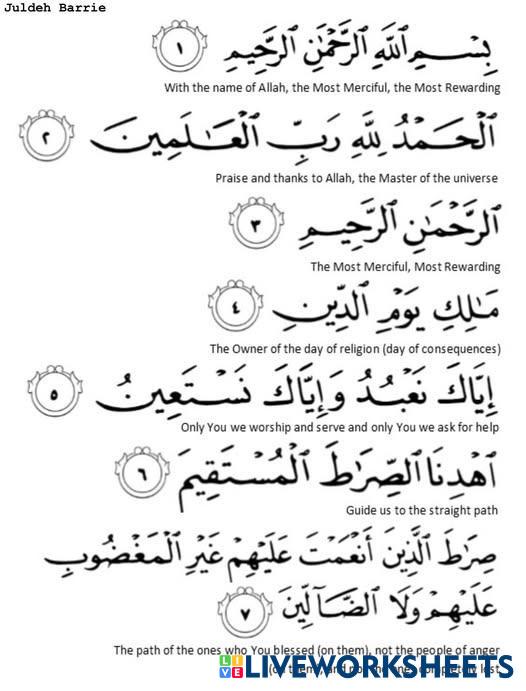 Juldeh Barrie
بِسْمِ ٱللَّهِ ٱلرَّحْمَٰنِ ٱلرَّحِيمِ ١
With the name of Allah, the Most Merciful, the Most Rewarding
ٱلْحَمْدُ لِلَّهِ رَبِّ ٱلْعَٰلَمِينَ ٢
Praise and thanks to Allah, the Master of the universe
ٱلرَّحْمَٰنِ ٱلرَّحِيمِ ٣
The Most Merciful, Most Rewarding
مَٰلِكِ يَوْمِ ٱلدِّينِ ٤
The Owner of the day of religion (day of consequences)
إِيَّاكَ نَعْبُدُ وَإِيَّاكَ نَسْتَعِينُ ٥
Only You we worship and serve and only You we ask for help
ٱهْدِنَا ٱلصِّرَٰطَ ٱلْمُسْتَقِيمَ ٦
Guide us to the straight path
صِرَٰطَ ٱلَّذِينَ أَنْعَمْتَ عَلَيْهِمْ غَيْرِ ٱلْمَغْضُوبِ
عَلَيْهِمْ وَلَا ٱلضَّآلِّينَ ٧
The path of the ones who You blessed (on them), not the people of anger
(on them), and not the ones completely lost
LIVE LIVEWORKSHEETS